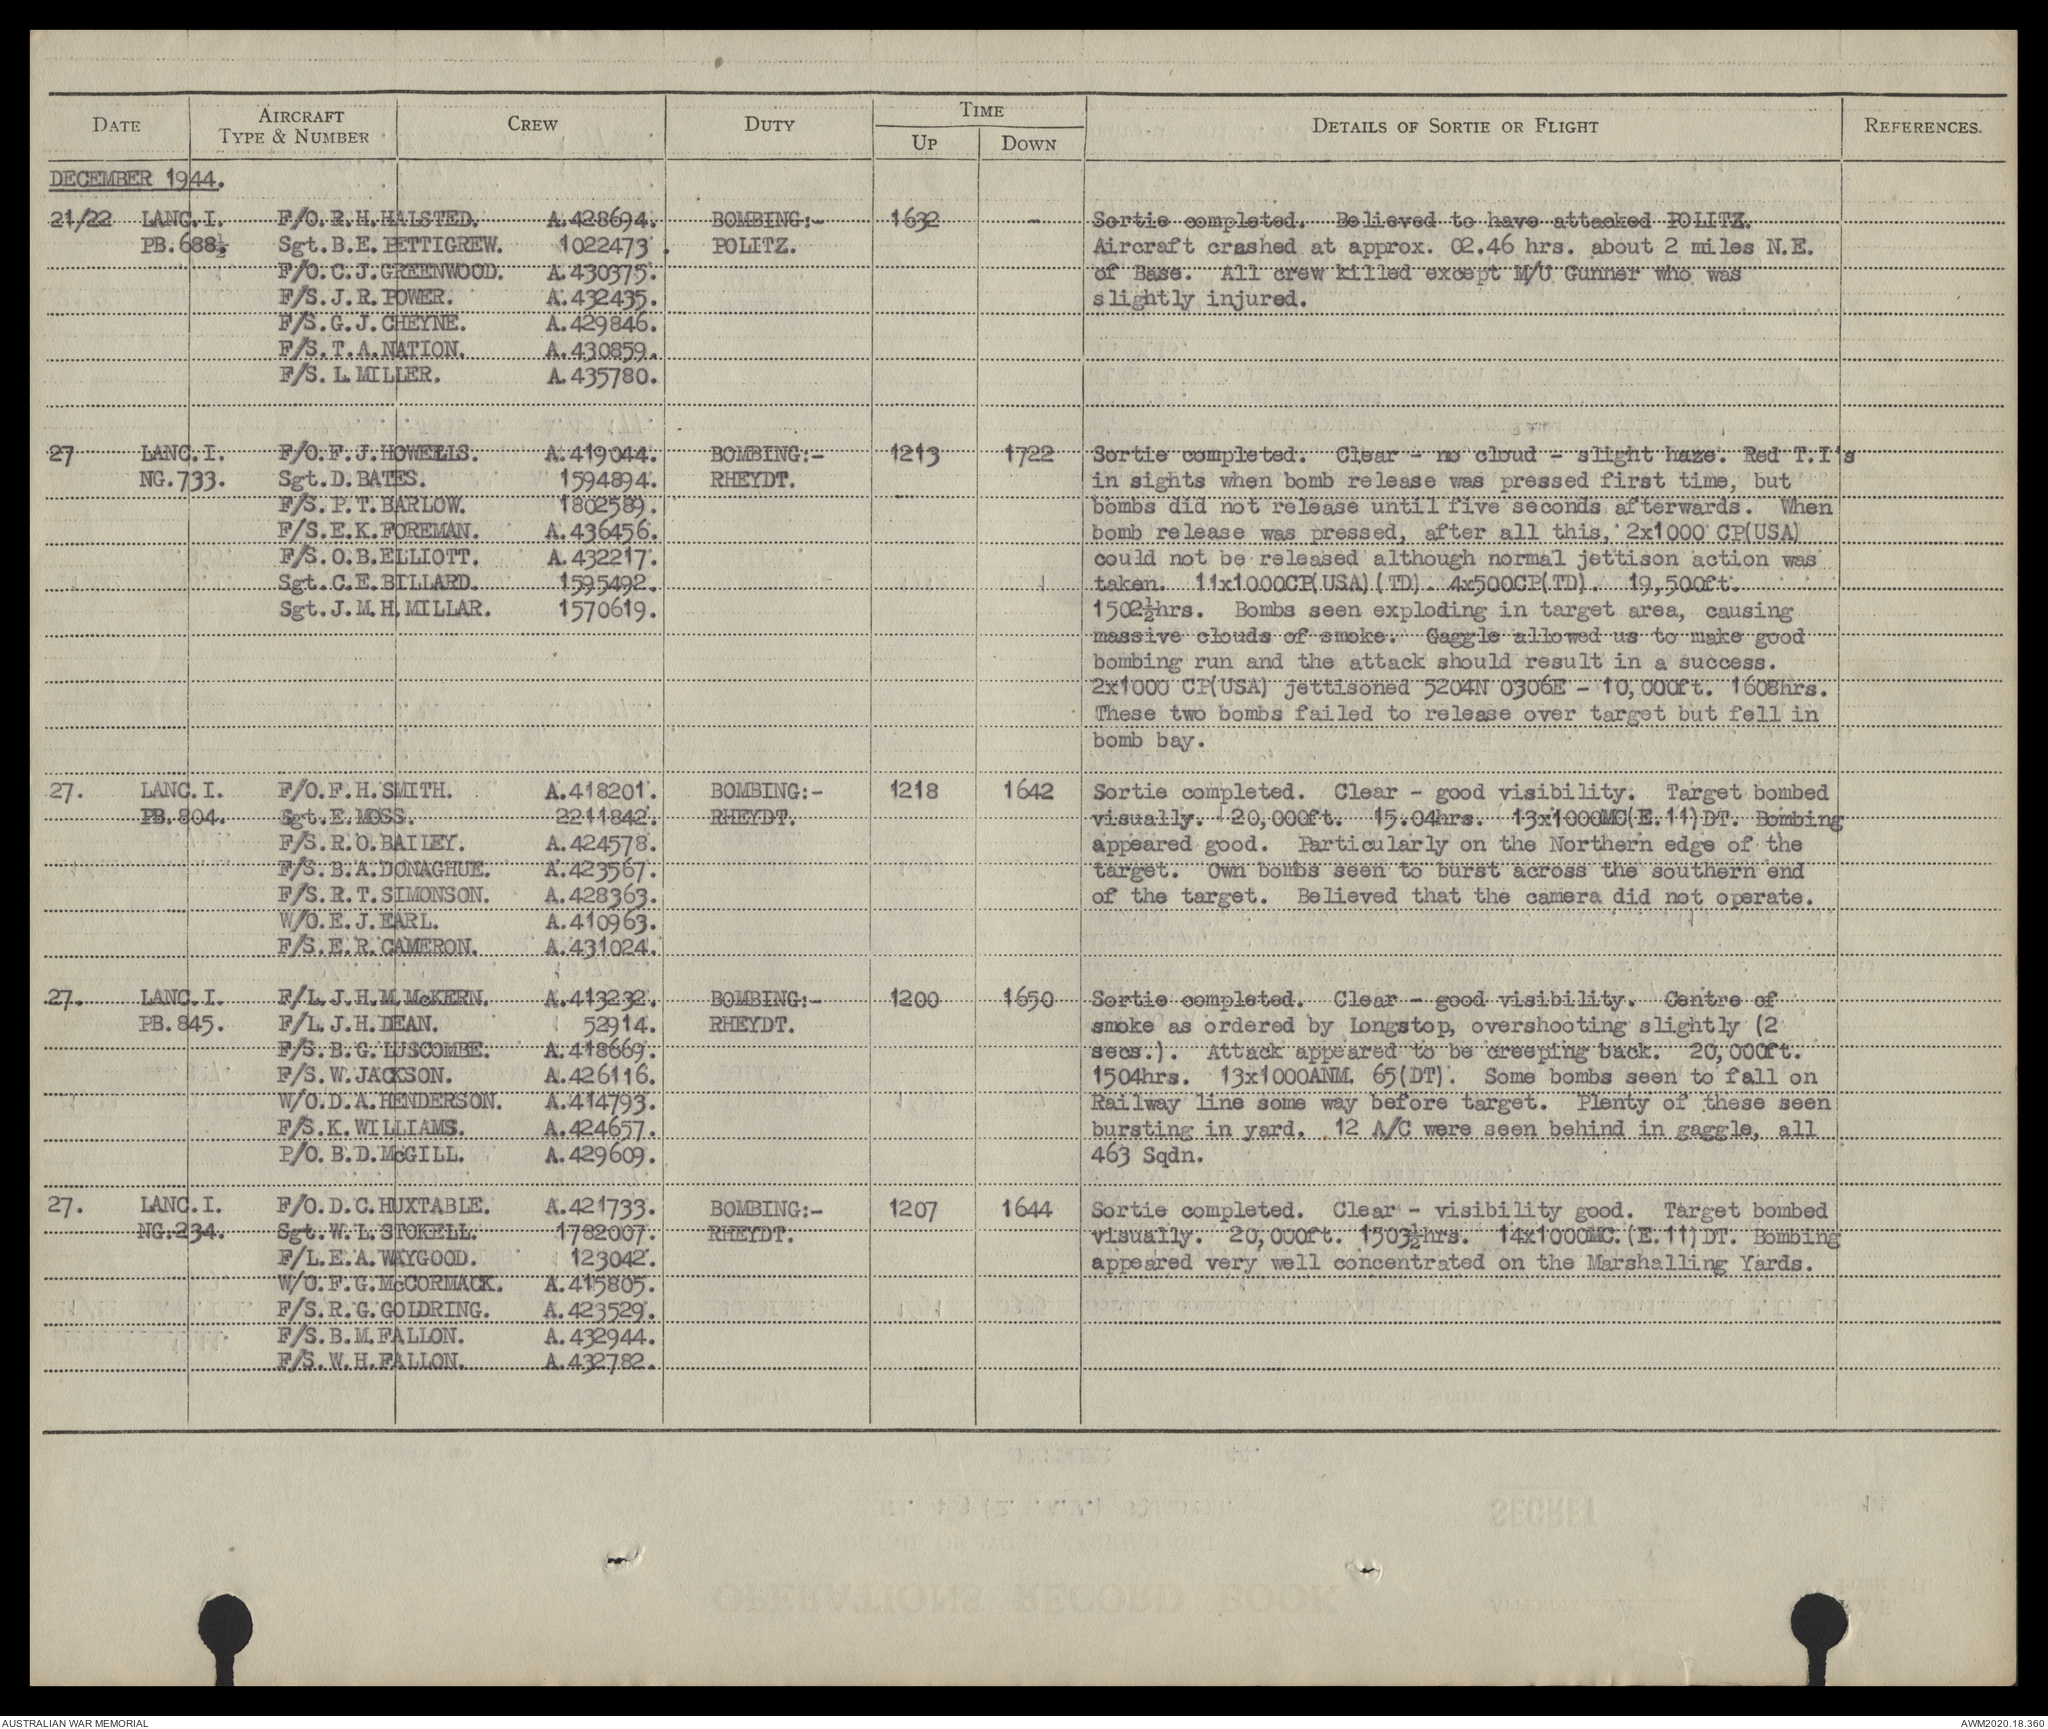 DATE AIRCRAFT TYPE & NUMBER CREW DUTY TIME UP DOWN DETAILS OF SORTIE OR FLIGHT REFERENCES.
DECEMBER 1944.
21/22 LANC.I. F/O.R.H.HALSTED. A.428694. BOMBING:- 1632 - Sortie completed. Believed to have attacked POLITZ.
PB.688½ Sgt.B.E.PETTIGREW. 1022473. POLITZ. Aircraft crashed at approx. 02.46 hrs. about 2 miles N.E.
F/O.C.J.GREENWOOD. A.430375. of Base. All crew killed except M/U Gunner who was
F/S.J.R.POWER. A.432435. slightly injured.
F/S.G.J.CHEYNE. A.429846.
F/S.T.A.NATION. A.430859.
F/S.L.MILLER. A.435780.
27 LANC.I. F/O.F.J.HOWELLS. A.419044. BOMBING:- 1213 1722 Sortie completed. Clear - no cloud - slight haze. Red T.I's
NG.733. Sgt.D.BATES. 1594894. RHEYDT. in sights when bomb release was pressed first time, but
F/S.P.T.BARLOW. 1802589. bombs did not release until five seconds afterwards. When
F/S.E.K.FOREMAN. A.436456. bomb release was pressed, after all this, 2x1000 CP(USA)
F/S.O.B.ELLIOTT. A.432217. could not be released although normal jettison action was
Sgt.C.E.BILLARD. 1595492. taken. 11x1000CP(USA)(TD). 4x500CP(TD). 19,500ft.
Sgt.J.M.H.MILLAR. 1570619. 1502½hrs. Bombs seen exploding in target area, causing
massive clouds of smoke. Gaggle allowed us to make good
bombing run and the attack should result in a success.
2x1000 CP(USA) jettisoned 5204N 0306E - 10,000ft. 1608hrs.
These two bombs failed to release over target but fell in
bomb bay.
27. LANC.I. F/O.F.H.SMITH. A.418201. BOMBING:- 1218 1642 Sortie completed. Clear - good visibility. Target bombed
PB.804. Sgt.E.MOSS. 2211842. RHEYDT. visually. 20,000ft. 15.04hrs. 13x1000MC(E.11)DT. Bombing
F/S.R.O.BAILEY. A.424578. appeared good. Particularly on the Northern edge of the
F/S.B.A.DONAGHUE. A.423567. target. Own bombs seen to burst across the southern end
F/S.R.T.SIMONSON. A.428363. of the target. Believed that the camera did not operate.
W/O.E.J.EARL. A.410963.
F/S.E.R.CAMERON. A.431024.
27. LANC.I. F/L.J.H.M.McKERN. A.413232. BOMBING:- 1200 1650 Sortie completed. Clear - good visibility. Centre of
PB.845. F/L.J.H.DEAN. 52914. RHEYDT. smoke as ordered by Longstop, overshooting slightly (2
F/S.B.G.LUSCOMBE. A.418669. secs.). Attack appeared to be creeping back. 20,000ft.
F/S.W.JACKSON. A.426116. 1504hrs. 13x1000ANM. 65(DT). Some bombs seen to fall on
W/O.D.A.HENDERSON. A.414793. Railway line some way before target. Plenty of these seen
F/S.K.WILLIAMS. A.424657. bursting in yard. 12 A/C were seen behind in gaggle, all
P/O.B.D.McGILL. A.429609. 463 Sqdn.
27. LANC.I. F/O.D.C.HUXTABLE. A.421733. BOMBING:- 1207 1644 Sortie completed. Clear - visibility good. Target bombed
NG.234. Sgt.W.L.STOKELL. 1782007. RHEYDT. visually. 20,000ft. 1503½hrs. 14x1000MC.(E.11)DT. Bombing
F/L.E.A.WAYGOOD. 123042. appeared very well concentrated on the Marshalling Yards.
W/O.F.G.McCORMACK. A.415805.
F/S.R.G.GOLDRING. A.423529.
F/S.B.M.FALLON. A.432944.
F/S.W.H.FALLON. A.432782.
SECRET
OPERATIONS RECORD BOOK
AUSTRALIAN WAR MEMORIAL AWM2020.18.360